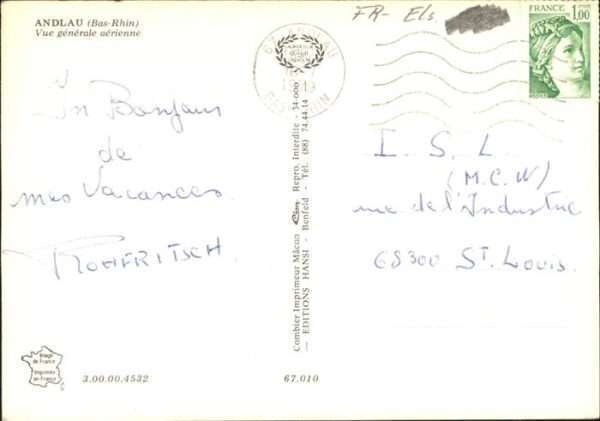 ANDLAU (Bas-Rhin)
Vue générale aérienne
FR- Els.
FRANCE
1,00
67 ANDLAU
BAS-RHIN
Un Bonjour
de
mes Vacances
ROHFRITSCH
I. S. L
(M.C.W)
rue de l'Industrie
68300 St. Louis.
Combier Imprimeur Mâcon Repro. Interdite - 54-000
— EDITIONS HANSI - Benfeld - Tél. (88) 74.44.14
Image
de France
Imprimée
en France
3.00.00.4532
67.010